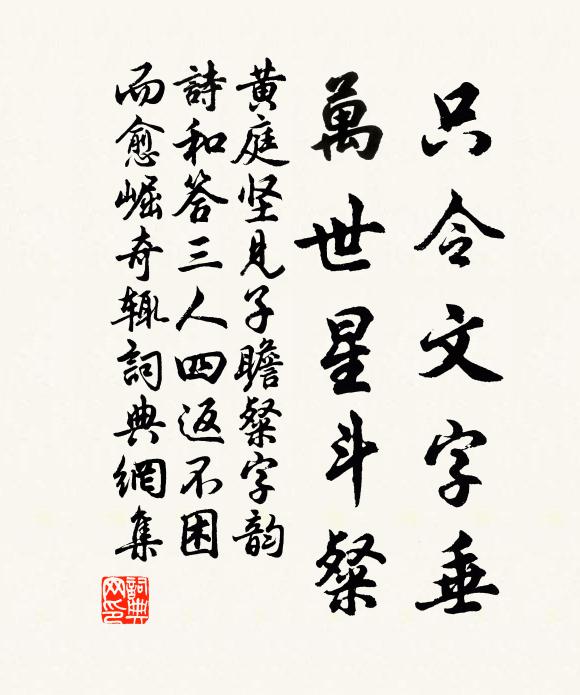 只令文字垂
萬世星斗粲
黄庭坚見子瞻粲字韵
詩和答三人四返不困
而愈崛奇輒詞典網集
詞典
网印